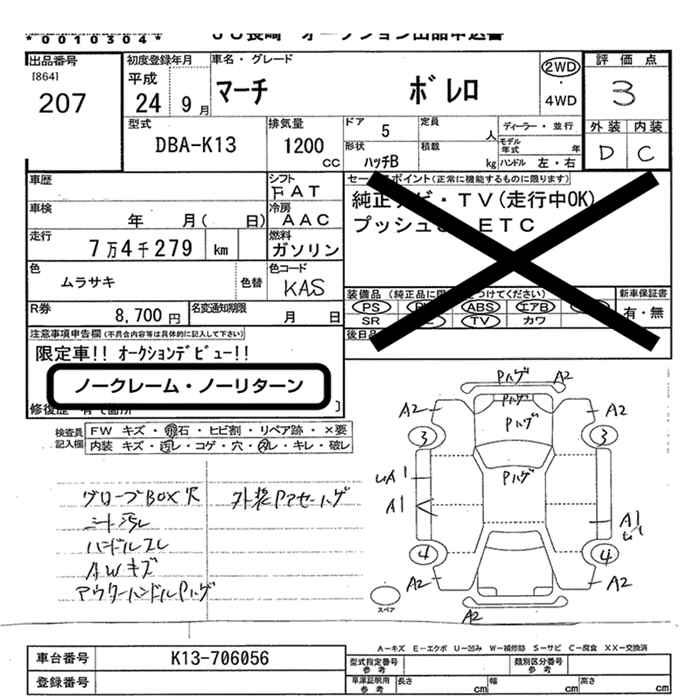 *0010304*
JU長崎 オークション出品申込書
出品番号
[864]
207
初度登録年月
平成
24 9月
車名・グレード
マーチ ボレロ
2WD
・
4WD
評価点
3
外装 内装
D C
型式
DBA-K13
排気量
1200
CC
ドア 5
形状
ハッチB
定員
人
積載
kg
ディーラー・並行
モデル年式 年
ハンドル 左・右
車歴
シフト
FAT
車検
年 月( 日)
冷房
AAC
走行
7万4千279 km
燃料
ガソリン
色
ムラサキ
色替
色コード
KAS
R券
8,700円
名変通知期限
月 日
セールスポイント(正常に機能するものに限ります)
純正ナビ・TV(走行中OK)
プッシュ ETC
装備品
PS ABS エアB
SR TV カワ
新車保証書
有・無
後日品
注意事項申告欄(不具合内容等は具体的に記入して下さい)
限定車!! オークションデビュー!!
ノークレーム・ノーリターン
修復歴
検査員記入欄
FW キズ・飛石・ヒビ割・リペア跡・×要
内装 キズ・汚レ・コゲ・穴・スレ・キレ・破レ
グローブBOX穴
シート汚レ
ハンドルスレ
AWキズ
アウターハンドルPハゲ
外装Pアセーハゲ
Pハゲ A2
A2 Pハゲ A2
Pハゲ
3 3
Pハゲ
A1
A1
A1
4 4
A2 A2
A2
スペア
A-キズ E-エクボ U-凹み W-補修跡 S-サビ C-腐食 XX-交換済
車台番号
K13-706056
登録番号
型式指定番号
参考
類別区分番号
参考
車庫証明用
参考
長さ cm
幅 cm
高さ cm